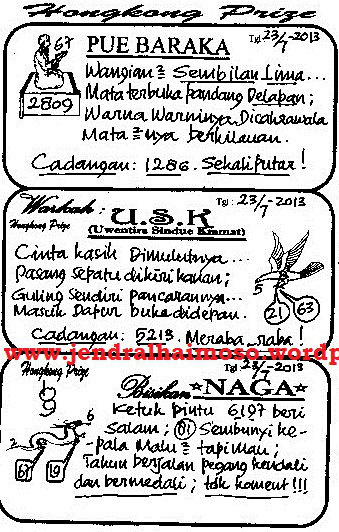 Hongkong Prize
67
PUE BARAKA
Tgl 23/7-2013
2809
Wangian² Sembilan Lima...
Mata terbuka pandang Delapan;
Warna Warninya Dicakrawala
Mata²nya berkilauan.
Cadangan: 1286. Sekali putar!
Warkah:
Hongkong Prize
U.S.K
(Uwentira Sindue Kramat)
Tgl: 23/7-2013
Cinta kasih Dimulutnya...
Pasang Sepatu dikiri kanan;
Guling Sendiri Pancarannya...
Masih Dapur buka didepan.
21 63
Cadangan: 5213. Meraba-raba!
www.jendralhaimoso.wordp
Hongkong Prize
Bisikan NAGA
Tgl 23/7-2013
Ketuk pintu 6197 beri
Salam; 01 Sembunyi ke-
pala Malu² tapi Mau;
Tahun berjalan pegang kendali
dan bermedali; tdk koment!!!
2 6
67 19